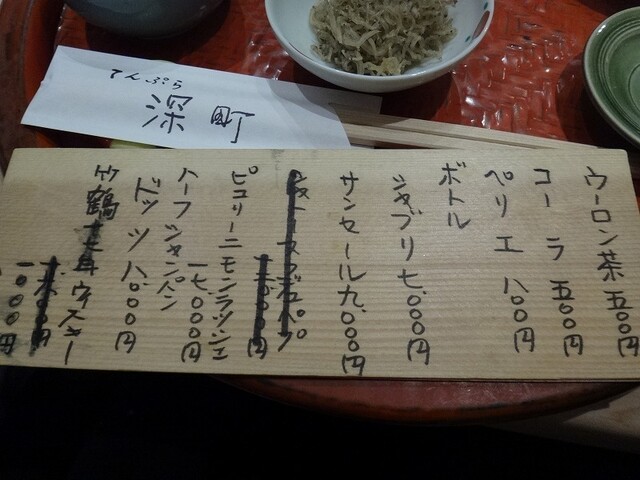 てんぷら
深町
ウーロン茶 五〇〇円
コーラ 五〇〇円
ペリエ 八〇〇円
ボトル
シャブリ 七、〇〇〇円
サンセール 九、〇〇〇円
ピュリーニモンラッシェ
一七、〇〇〇円
ハーフシャンパン
ドッツ 八、〇〇〇円
竹鶴十七年ウィスキー
一〇〇〇円